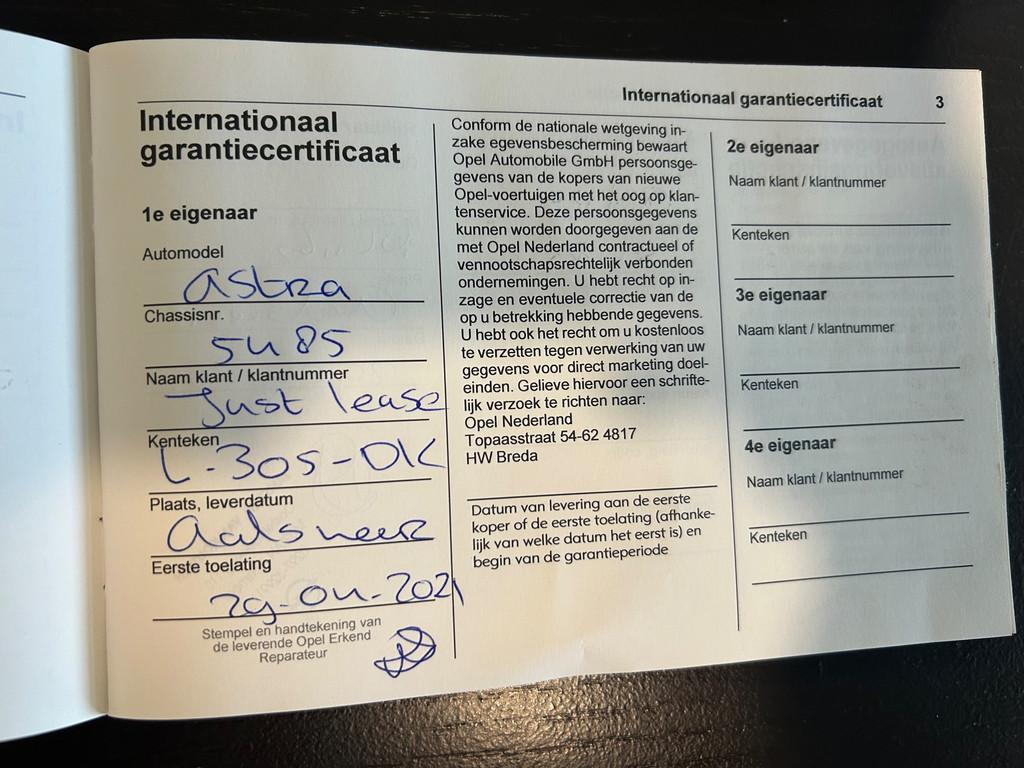 Internationaal garantiecertificaat 3
Internationaal
garantiecertificaat
1e eigenaar
Automodel
Astra
Chassisnr.
5485
Naam klant / klantnummer
Just lease
Kenteken
L-305-DK
Plaats, leverdatum
Aalsmeer
Eerste toelating
29-04-2021
Stempel en handtekening van
de leverende Opel Erkend
Reparateur
Conform de nationale wetgeving in-
zake egevensbescherming bewaart
Opel Automobile GmbH persoonsge-
gevens van de kopers van nieuwe
Opel-voertuigen met het oog op klan-
tenservice. Deze persoonsgegevens
kunnen worden doorgegeven aan de
met Opel Nederland contractueel of
vennootschapsrechtelijk verbonden
ondernemingen. U hebt recht op in-
zage en eventuele correctie van de
op u betrekking hebbende gegevens.
U hebt ook het recht om u kostenloos
te verzetten tegen verwerking van uw
gegevens voor direct marketing doel-
einden. Gelieve hiervoor een schrifte-
lijk verzoek te richten naar:
Opel Nederland
Topaasstraat 54-62 4817
HW Breda
Datum van levering aan de eerste
koper of de eerste toelating (afhanke-
lijk van welke datum het eerst is) en
begin van de garantieperiode
2e eigenaar
Naam klant / klantnummer
Kenteken
3e eigenaar
Naam klant / klantnummer
Kenteken
4e eigenaar
Naam klant / klantnummer
Kenteken